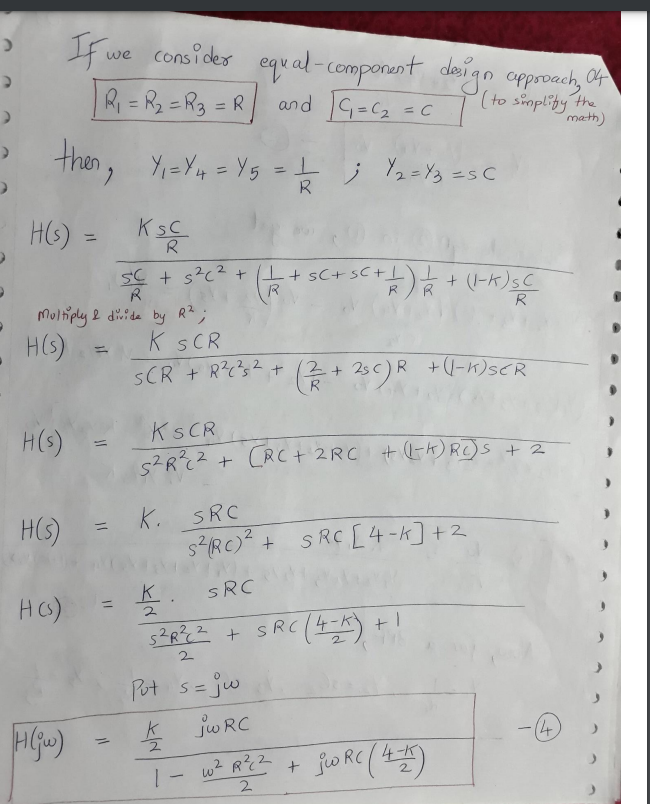 If we consider equal-component design approach, 04
R₁ = R₂ = R₃ = R and C₁ = C₂ = C (to simplify the math)
then, Y₁ = Y₄ = Y₅ = 1/R ; Y₂ = Y₃ = sC
H(s) = (K sC/R) / (sC/R + s²C² + (1/R + sC + sC + 1/R) 1/R + (1-K) sC/R)
Multiply & divide by R²;
H(s) = K sCR / (sCR + R²C²s² + (2/R + 2sC) R + (1-K)sCR)
H(s) = K sCR / (s²R²C² + [RC + 2RC + (1-K) RC]s + 2)
H(s) = K. sRC / (s²(RC)² + sRC [4-K] + 2)
H(s) = K/2 . sRC / (s²R²C²/2 + sRC ((4-K)/2) + 1)
Put s = jω
H(jω) = K/2 jωRC / (1 - ω²R²C²/2 + jωRC ((4-K)/2)) - ④